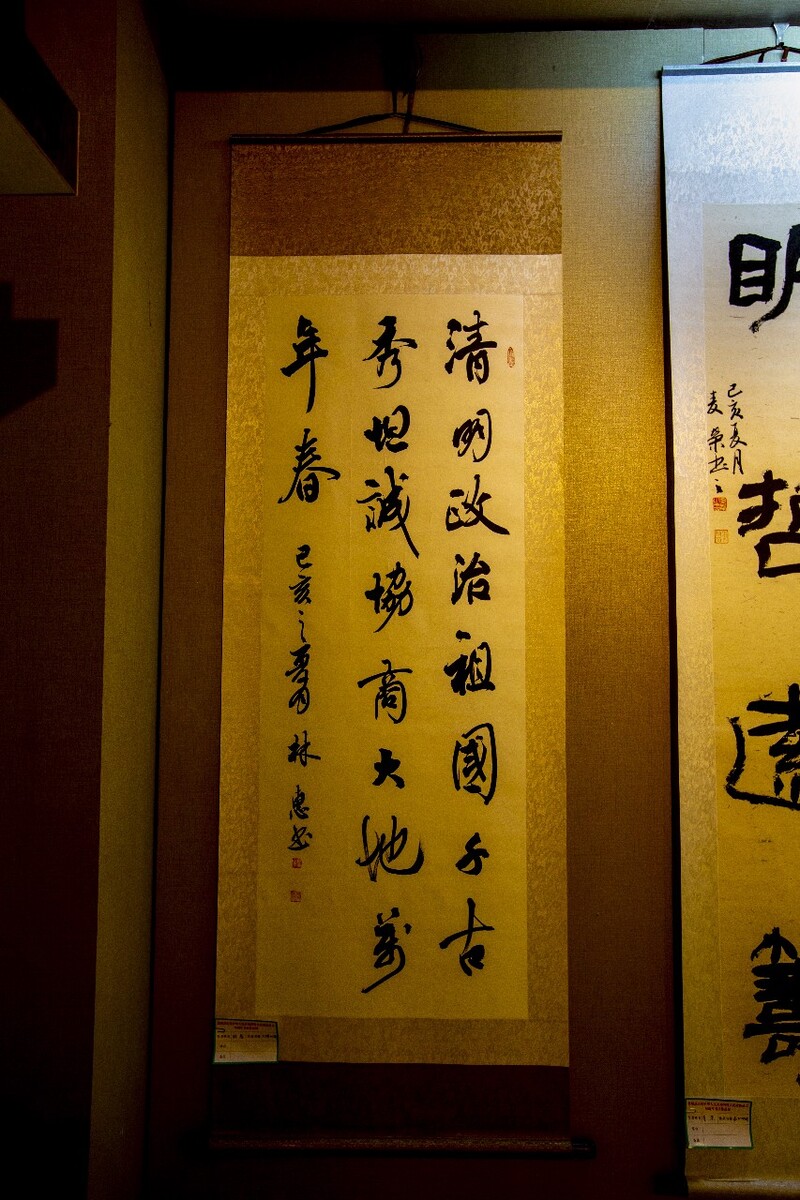 清明政治祖國千古
秀坦誠協商大地萬
年春
己亥之夏月林惠书
明哲遠壽
己亥夏月
麦荣书之